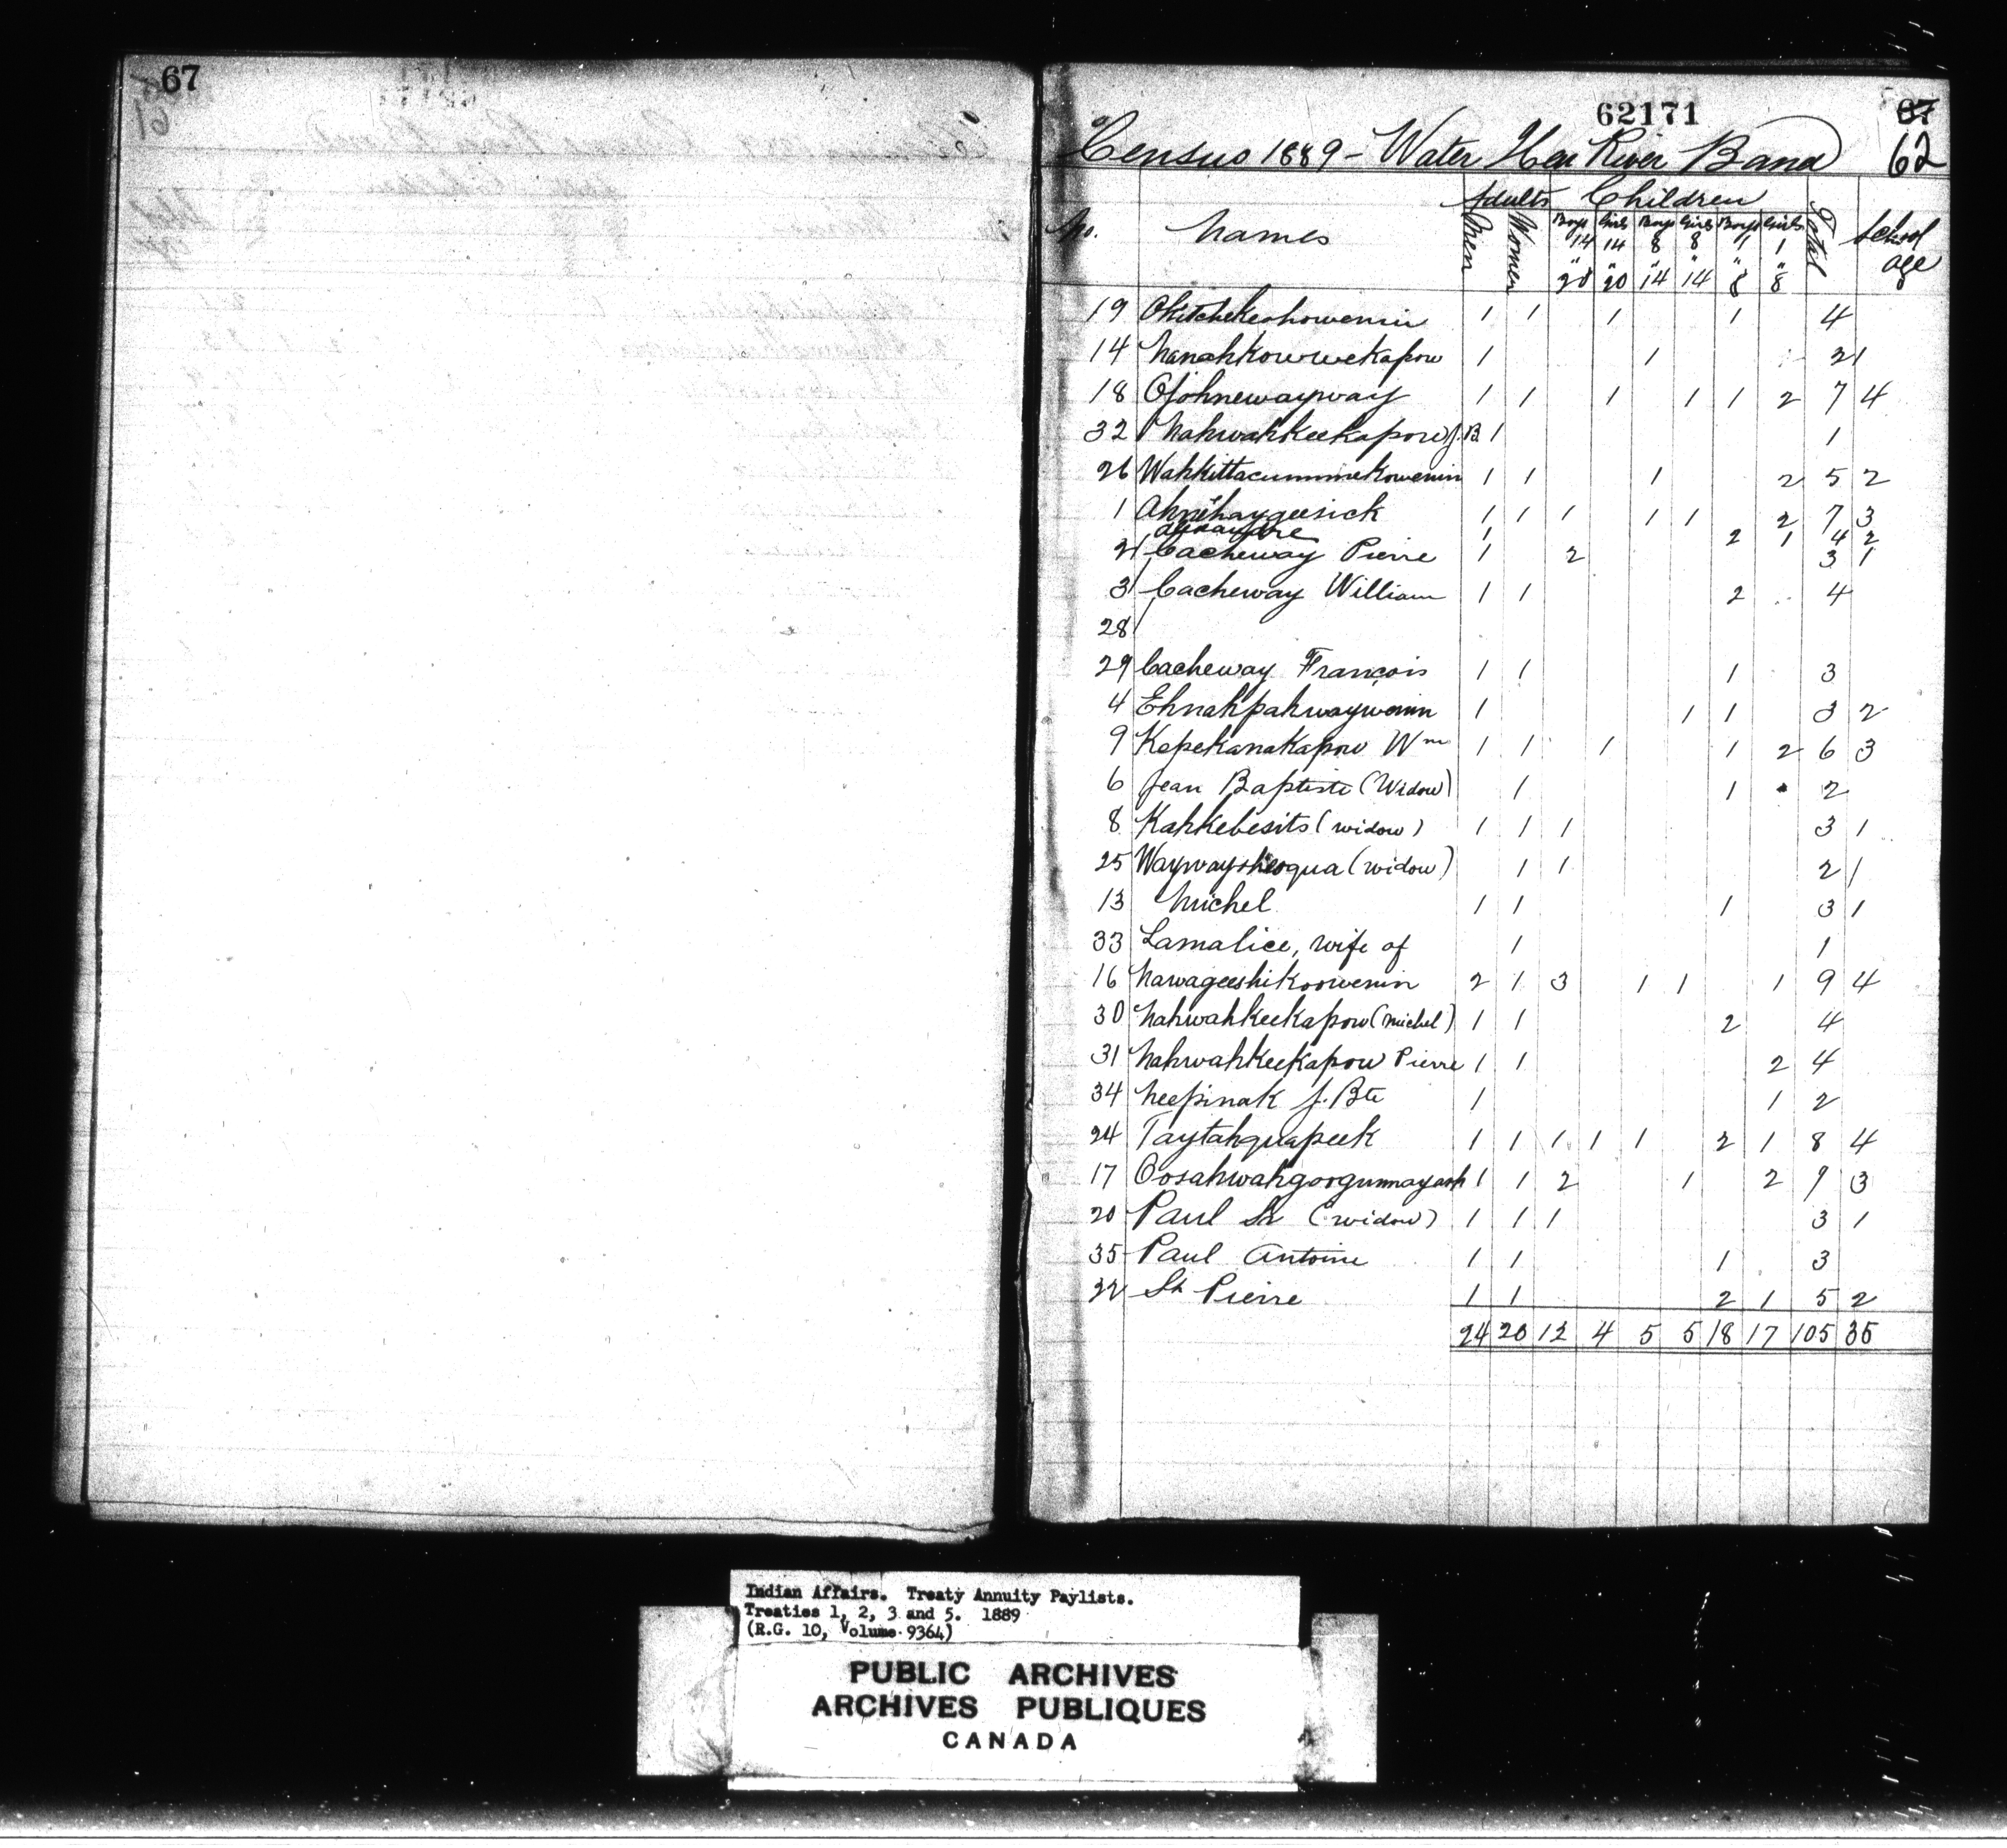 67
62171
67
62
Census 1889 - Water Hen River Band
Adults Children
No. Names Men Women Boys 14 " 20 Girls 14 " 20 Boys 8 " 14 Girls 8 " 14 Boys 1 " 8 Girls 1 " 8 Total School age
19 Okitchekeshowenin 1 1 1 1 4
14 Nanahkowwekapow 1 1 2 1
18 Ojohnewayway 1 1 1 1 1 2 7 4
32 Nahwahkeekapow J.B. 1 1
26 Wahkittacummmekowenin 1 1 1 2 5 2
1 Ahnehaygeesick 1 1 1 1 1 2 7 3
Alexandre 1 2 1 4 2
2 Cacheway Pierre 1 2 3 1
3 Cacheway William 1 1 2 4
28
29 Cacheway François 1 1 1 3
4 Ehnahpahwaywenin 1 1 1 3 2
9 Kepekanakapow Wm 1 1 1 1 2 6 3
6 Jean Baptiste (Widow) 1 1 2
8 Kahkebesits (widow) 1 1 1 3 1
25 Waywaysheoqua (widow) 1 1 2 1
13 Michel 1 1 1 3 1
33 Lamalice, wife of 1 1
16 Nawageeshikoowenin 2 1 3 1 1 1 9 4
30 Nahwahkeekapow (Michel) 1 1 2 4
31 Nahwahkeekapow Pierre 1 1 2 4
34 Neepinak J. Bte 1 1 2
24 Taytahquapeek 1 1 1 1 1 2 1 8 4
17 Oosahwahgoogunnayash 1 1 2 1 2 7 3
20 Paul Sr (widow) 1 1 1 3 1
35 Paul Antoine 1 1 1 3
22 St Pierre 1 1 2 1 5 2
24 20 12 4 5 5 18 17 105 35
Indian Affairs. Treaty Annuity Paylists.
Treaties 1, 2, 3 and 5. 1889
(R.G. 10, Volume 9364)
PUBLIC ARCHIVES
ARCHIVES PUBLIQUES
CANADA